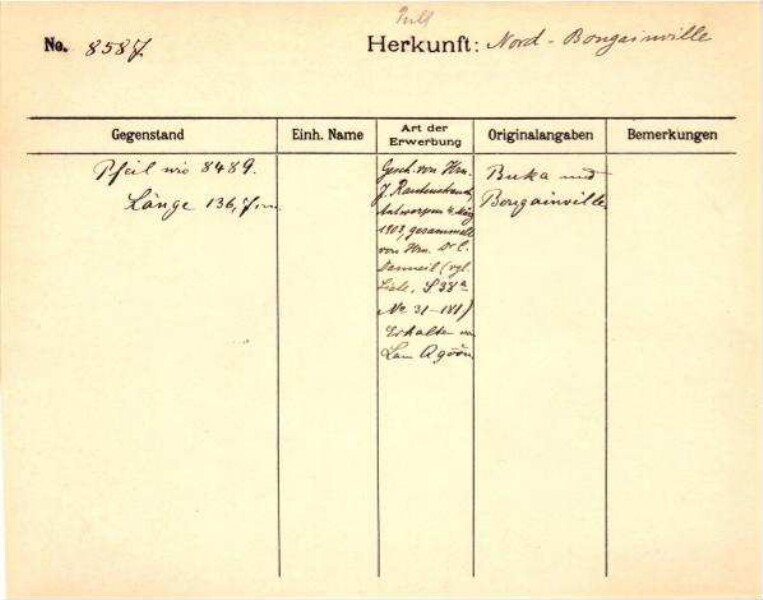 No. 8587
Herkunft: Nord - Bougainville
Gegenstand
Einh. Name
Art der
Erwerbung
Originalangaben
Bemerkungen
Pfeil wie 8489.
Länge 136,7 cm
Gesch. von Hrn.
J. Rautenstrauch,
Antwerpen 4. März
1903, gesammelt
von Hrn. Dr C.
(vgl.
Liste, S 38a
No 31-181)
Erhalten von
Buka und
Bougainville